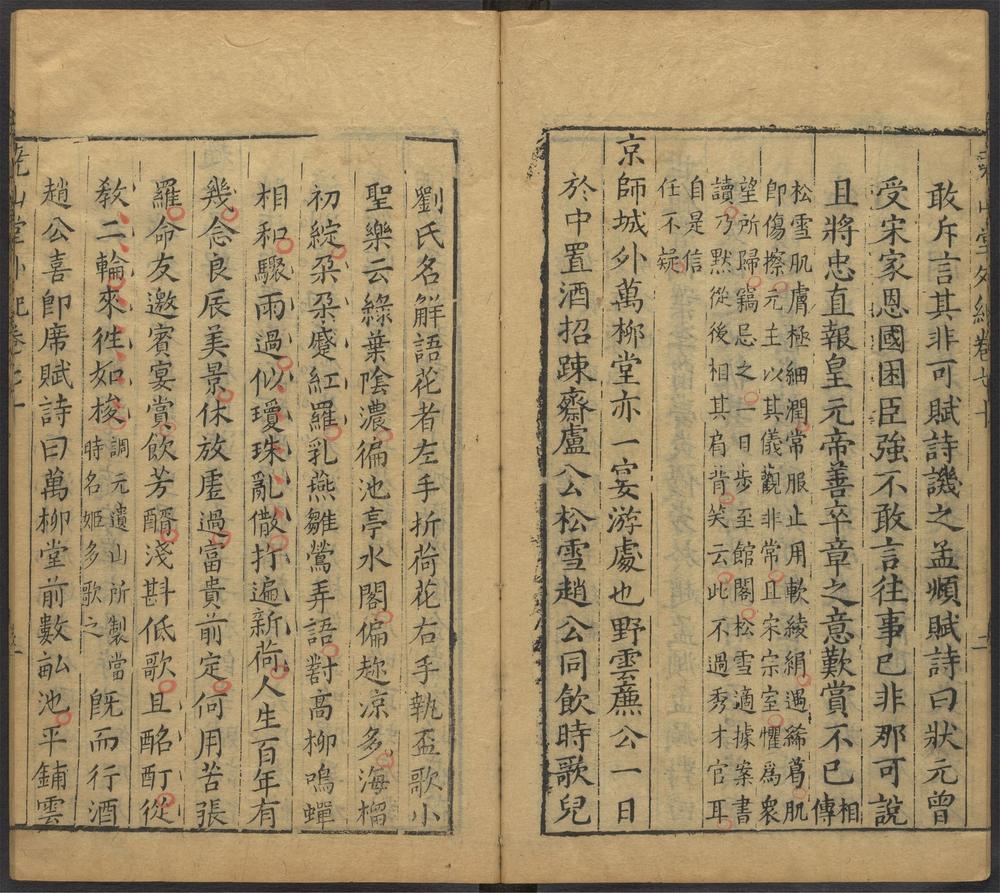 敢斥言其非可賦詩譏之孟頫賦詩曰狀元曾
受宋家恩國困臣強不敢言往事已非那可說
且將忠直報皇元帝善卒章之意歎賞不已相傳
松雪肌膚極細潤常服止用軟綾絹遇絺葛肌
即傷擦元主以其儀觀非常且宋宗室懼為衆
望所歸竊忌之一日步至館閣松雪適據案書
讀乃默從後相其肩背笑云此不過秀才官耳
自是信
任不疑
京師城外萬柳堂亦一宴游處也野雲亷公一日
於中置酒招踈齋盧公松雪趙公同飲時歌兒
劉氏名解語花者左手折荷花右手執盃歌小
聖樂云綠葉陰濃徧池亭水閣偏趂凉多海榴
初綻朶朶蹙紅羅乳燕雛鶯弄語對高柳鳴蟬
相和驟雨過似瓊珠亂儎打遍新荷人生百年有
幾念良辰美景休放虛過富貴前定何用苦張
羅命友邀賓宴賞飲芳醑淺斟低歌且酩酊從
教二輪來徃如梭調元遺山所製當
時名姬多歌之旣而行酒
趙公喜即席賦詩曰萬柳堂前數畝池平鋪雲
堯山堂外紀卷七十